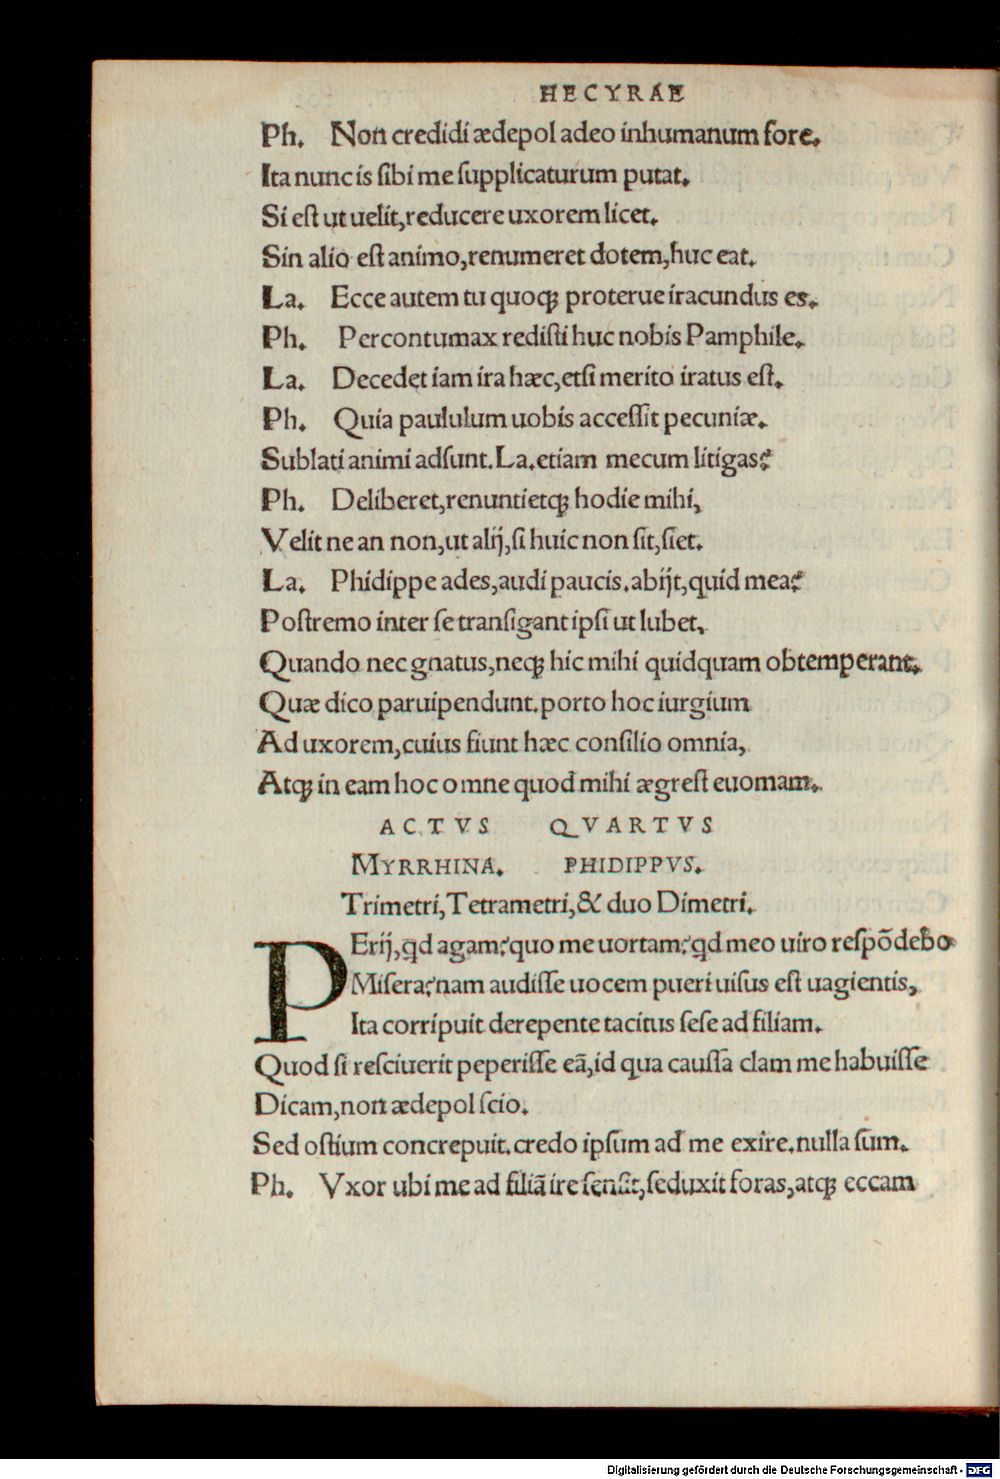 HECYRAE
Ph. Non credidi ædepol adeo inhumanum fore.
Ita nunc is sibi me ſupplicaturum putat.
Si eſt ut uelit, reducere uxorem licet.
Sin alio eſt animo, renumeret dotem, huc eat.
La. Ecce autem tu quoqꝫ proterue iracundus es.
Ph. Percontumax rediſti huc nobis Pamphile.
La. Decedet iam ira hæc, etſi merito iratus eſt.
Ph. Quia paululum uobis acceſſit pecuniæ.
Sublati animi adſunt. La. etiam mecum litigas?
Ph. Deliberet, renuntietqꝫ hodie mihi,
Velit ne an non, ut alij, ſi huic non ſit, ſiet.
La. Phidippe ades, audi paucis. abijt, quid mea?
Poſtremo inter ſe tranſigant ipſi ut lubet,
Quando nec gnatus, neqꝫ hic mihi quidquam obtemperant.
Quæ dico paruipendunt. porto hoc iurgium
Ad uxorem, cuius fiunt hæc conſilio omnia,
Atqꝫ in eam hoc omne quod mihi ægreſt euomam.
ACTVS QVARTVS
MYRRHINA. PHIDIPPVS.
Trimetri, Tetrametri, & duo Dimetri.
PErij, qd agam? quo me uortam? qd meo uiro reſpõdebo
Miſera? nam audiſſe uocem pueri uiſus eſt uagientis,
Ita corripuit derepente tacitus ſeſe ad filiam.
Quod ſi reſciuerit peperiſſe eã, id qua cauſſa clam me habuiſſe
Dicam, non ædepol ſcio.
Sed oſtium concrepuit. credo ipſum ad me exire. nulla ſum.
Ph. Vxor ubi me ad filiã ire ſenſit, ſeduxit foras, atqꝫ eccam
Digitalisierung gefördert durch die Deutsche Forschungsgemeinschaft - DFG